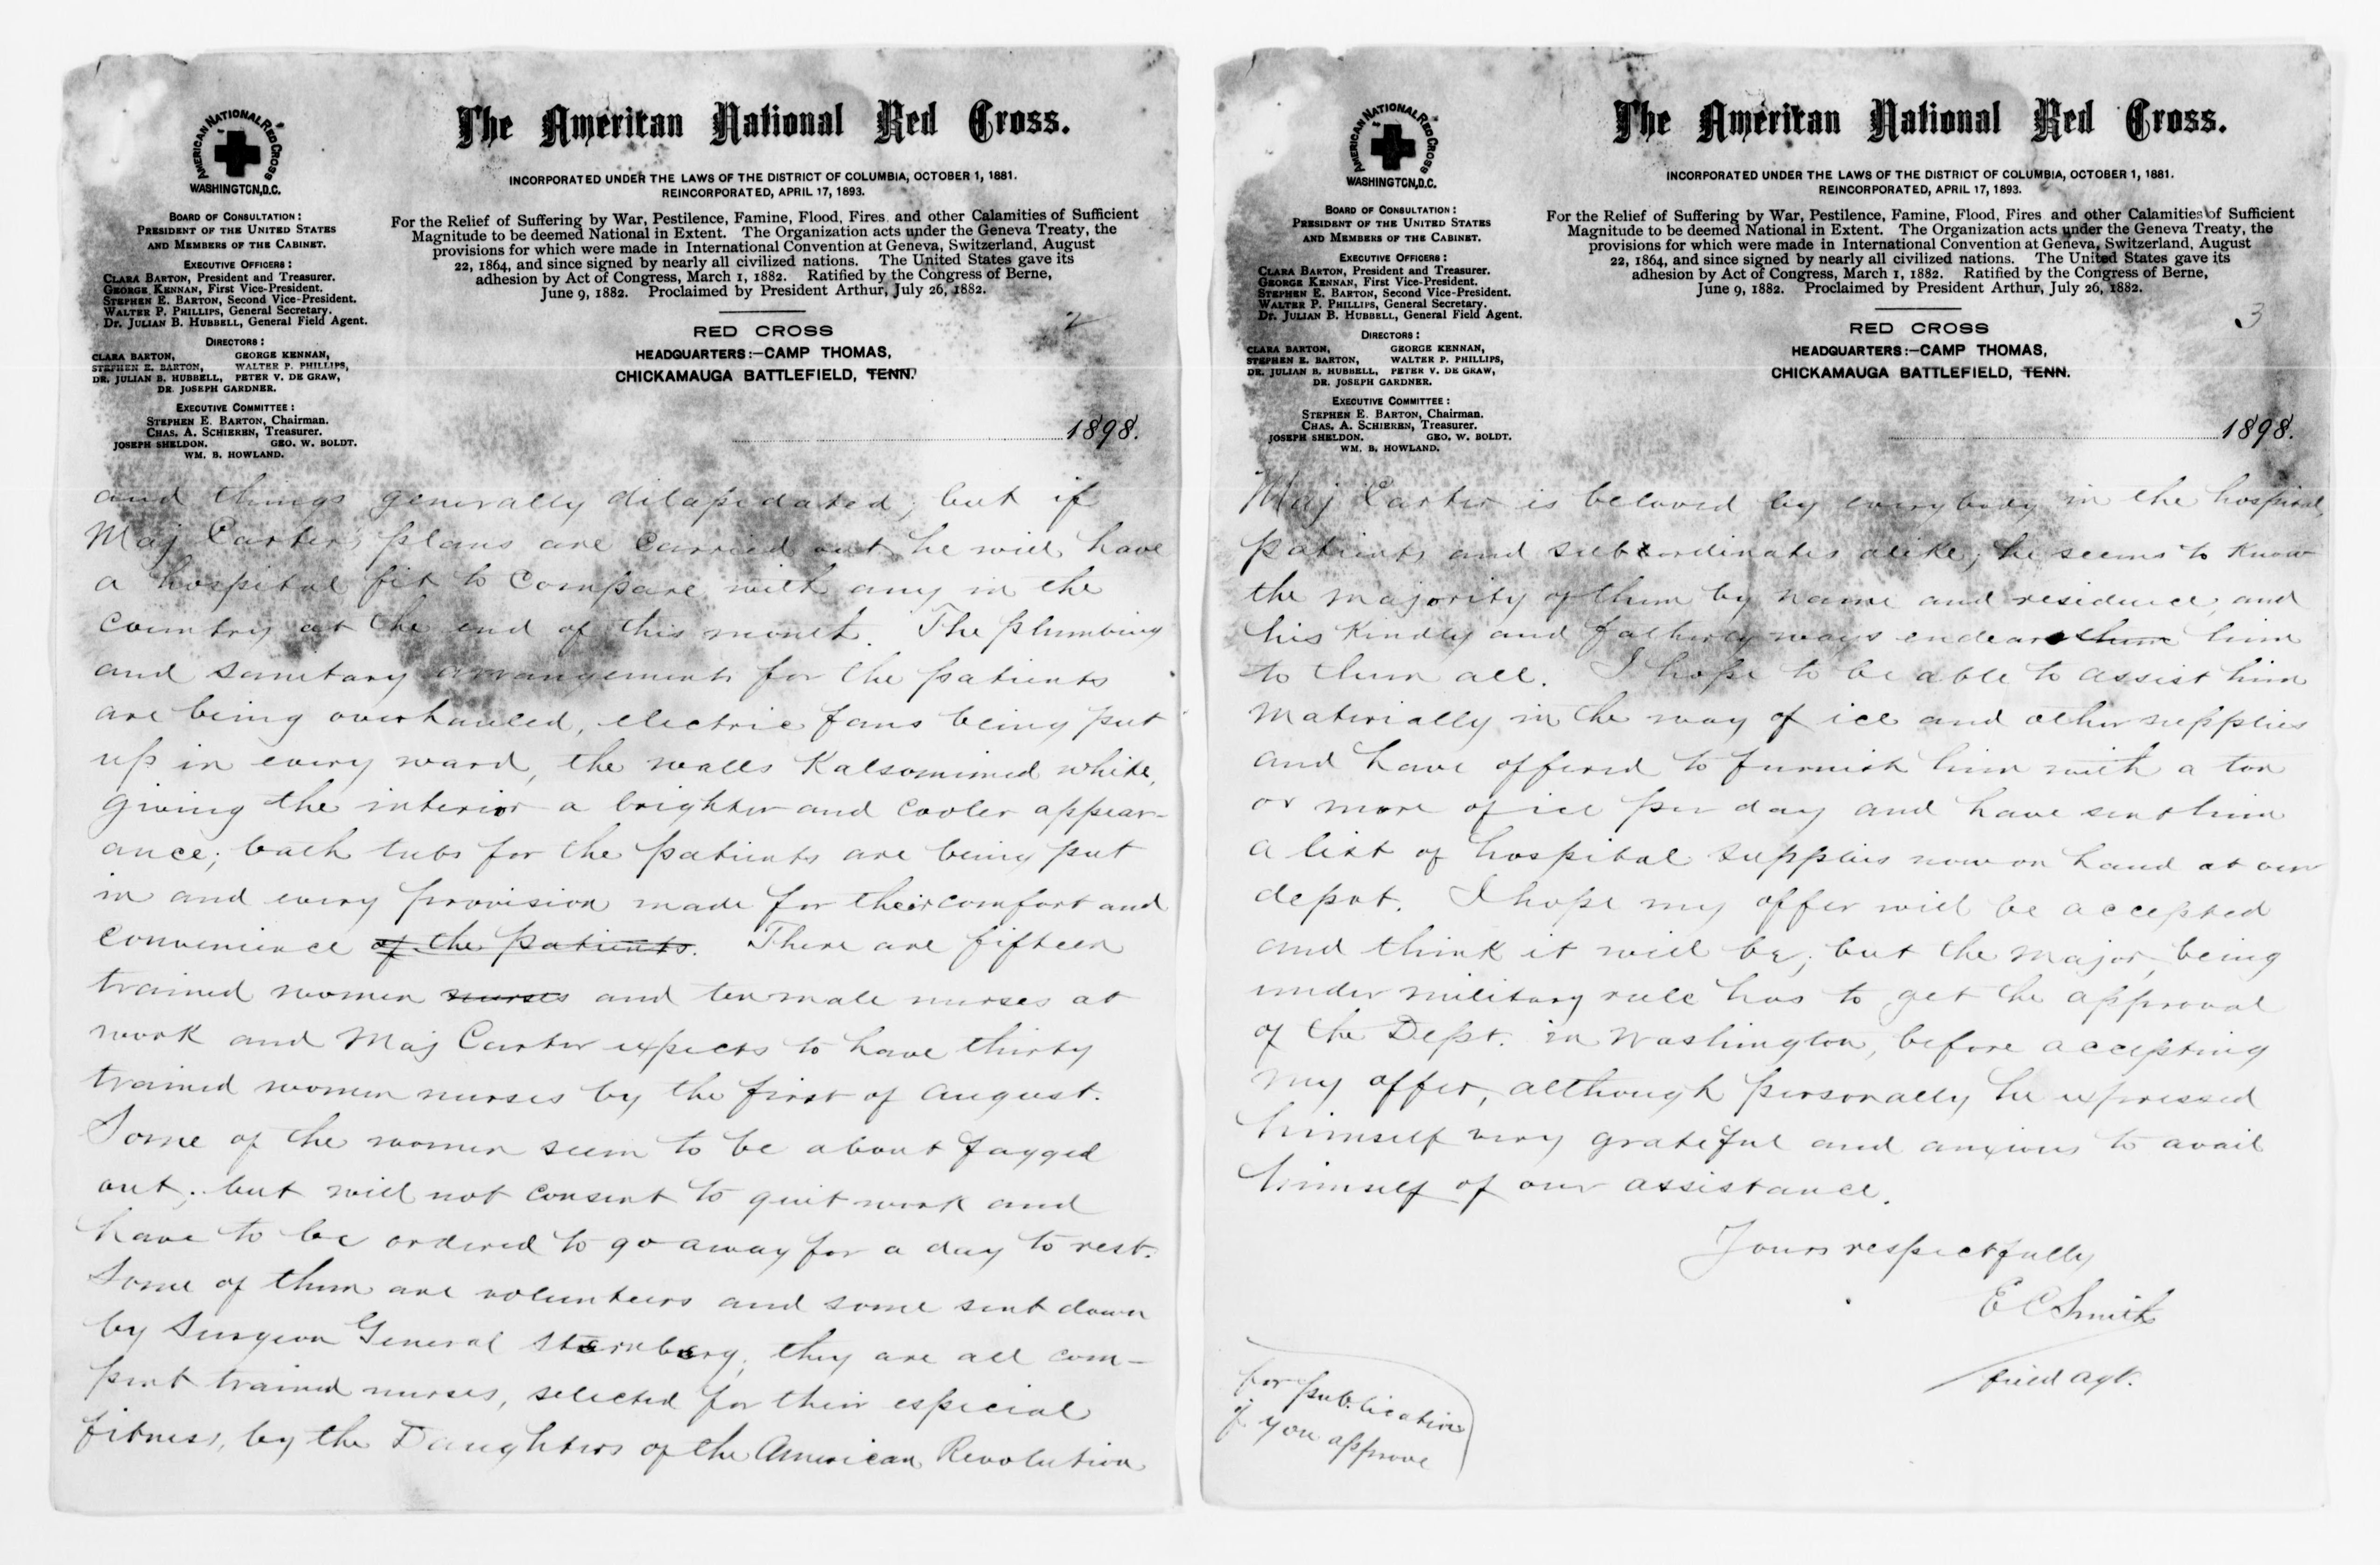 AMERICAN NATIONAL RED CROSS
WASHINGTON, D.C.
The American National Red Cross.
INCORPORATED UNDER THE LAWS OF THE DISTRICT OF COLUMBIA, OCTOBER 1, 1881.
REINCORPORATED, APRIL 17, 1893.
For the Relief of Suffering by War, Pestilence, Famine, Flood, Fires and other Calamities of Sufficient
Magnitude to be deemed National in Extent. The Organization acts under the Geneva Treaty, the
provisions for which were made in International Convention at Geneva, Switzerland, August
22, 1864, and since signed by nearly all civilized nations. The United States gave its
adhesion by Act of Congress, March 1, 1882. Ratified by the Congress of Berne,
June 9, 1882. Proclaimed by President Arthur, July 26, 1882.
BOARD OF CONSULTATION:
PRESIDENT OF THE UNITED STATES
AND MEMBERS OF THE CABINET.
EXECUTIVE OFFICERS:
CLARA BARTON, President and Treasurer.
GEORGE KENNAN, First Vice-President.
STEPHEN E. BARTON, Second Vice-President.
WALTER P. PHILLIPS, General Secretary.
DR. JULIAN B. HUBBELL, General Field Agent.
DIRECTORS:
CLARA BARTON, GEORGE KENNAN,
STEPHEN E. BARTON, WALTER P. PHILLIPS,
DR. JULIAN B. HUBBELL, PETER V. DE GRAW,
DR. JOSEPH GARDNER.
EXECUTIVE COMMITTEE:
STEPHEN E. BARTON, Chairman.
CHAS. A. SCHIEREN, Treasurer.
JOSEPH SHELDON. GEO. W. BOLDT.
WM. B. HOWLAND.
2
RED CROSS
HEADQUARTERS:—CAMP THOMAS,
CHICKAMAUGA BATTLEFIELD, TENN.
1898.
and things generally dilapedated; but if
Maj Carter's plans are carried out he will have
a hospital fit to compare with any in the
country at the end of this month. The plumbing
and sanitary arrangements for the patients
are being overhauled, electric fans being put
up in every ward, the walls Kalsomined white,
giving the interior a brighter and cooler appear-
ance; bath tubs for the patients are being put
in and every provision made for their comfort and
convenience of the patients. There are fifteen
trained women nurses and ten male nurses at
work and Maj Carter expects to have thirty
trained women nurses by the first of August.
Some of the women seem to be about fagged
out; but will not consent to quit work and
have to be ordered to go away for a day to rest.
Some of them are volunteers and some sent down
by Surgeon General Sternberg; they are all com-
pent trained nurses, selected for their especial
fitness, by the Daughters of the American Revolution
AMERICAN NATIONAL RED CROSS
WASHINGTON, D.C.
The American National Red Cross.
INCORPORATED UNDER THE LAWS OF THE DISTRICT OF COLUMBIA, OCTOBER 1, 1881.
REINCORPORATED, APRIL 17, 1893.
For the Relief of Suffering by War, Pestilence, Famine, Flood, Fires and other Calamities of Sufficient
Magnitude to be deemed National in Extent. The Organization acts under the Geneva Treaty, the
provisions for which were made in International Convention at Geneva, Switzerland, August
22, 1864, and since signed by nearly all civilized nations. The United States gave its
adhesion by Act of Congress, March 1, 1882. Ratified by the Congress of Berne,
June 9, 1882. Proclaimed by President Arthur, July 26, 1882.
BOARD OF CONSULTATION:
PRESIDENT OF THE UNITED STATES
AND MEMBERS OF THE CABINET.
EXECUTIVE OFFICERS:
CLARA BARTON, President and Treasurer.
GEORGE KENNAN, First Vice-President.
STEPHEN E. BARTON, Second Vice-President.
WALTER P. PHILLIPS, General Secretary.
DR. JULIAN B. HUBBELL, General Field Agent.
DIRECTORS:
CLARA BARTON, GEORGE KENNAN,
STEPHEN E. BARTON, WALTER P. PHILLIPS,
DR. JULIAN B. HUBBELL, PETER V. DE GRAW,
DR. JOSEPH GARDNER.
EXECUTIVE COMMITTEE:
STEPHEN E. BARTON, Chairman.
CHAS. A. SCHIEREN, Treasurer.
JOSEPH SHELDON. GEO. W. BOLDT.
WM. B. HOWLAND.
3
RED CROSS
HEADQUARTERS:—CAMP THOMAS,
CHICKAMAUGA BATTLEFIELD, TENN.
1898.
Maj Carter is beloved by everybody in the hospital,
patients and subordinates alike; he seems to know
the majority of them by name and residence, and
his kindly and fatherly ways endears them him
to them all. I hope to be able to assist him
materially in the way of ice and other supplies
and have offered to furnish him with a ton
or more of ice per day and have sent him
a list of hospital supplies now on hand at our
depot. I hope my offer will be accepted
and think it will be; but the Major, being
under military rule has to get the approval
of the Dept. in Washington, before accepting
my offer, although personally he expressed
himself very grateful and anxious to avail
himself of our assistance.
Yours respectfully
E C Smith
field agt.
for publication
if you approve